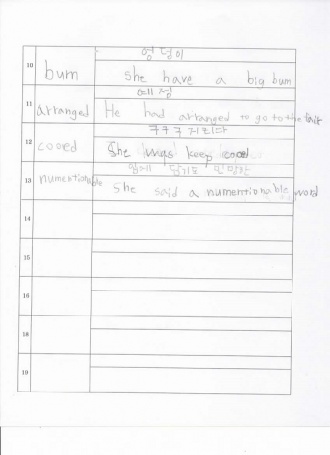 엉덩이
10 bum She have a big bum
예정
11 arranged He had arranged to go to the fair
구구구 거리다
12 cooed She was keep cooed
입에 담기도 민망한
13 numentionable She said a numentionable word
14
15
16
18
19